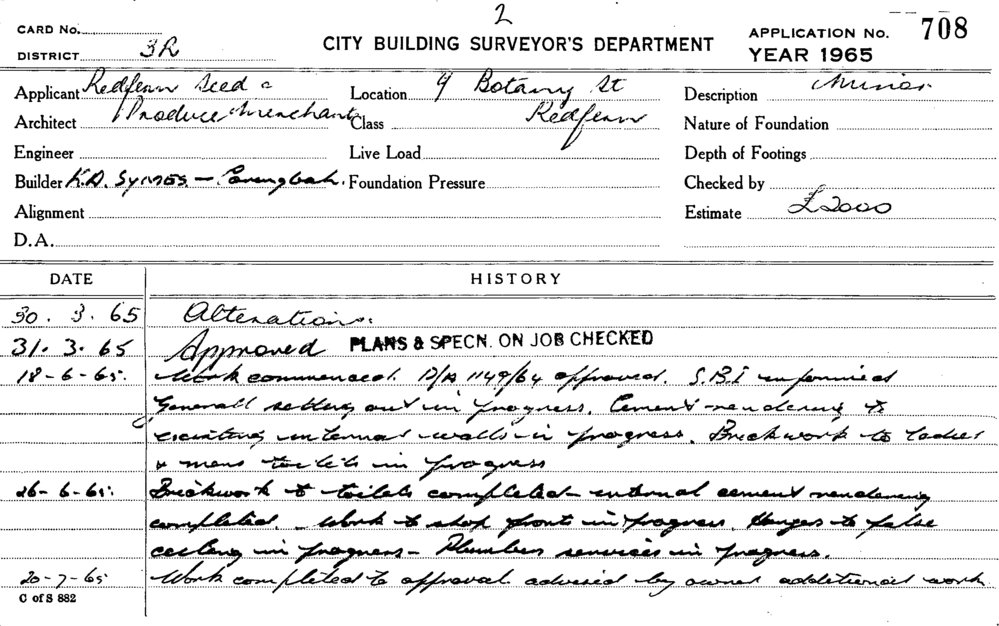 2
CARD No.
DISTRICT 3R
CITY BUILDING SURVEYOR'S DEPARTMENT
APPLICATION No. 708
YEAR 1965
Applicant Redfern Seed &
Produce Merchants
Location 9 Botany St
Redfern
Description Minor
Architect
Class
Nature of Foundation
Engineer
Live Load
Depth of Footings
Builder K.D. SYMES. — Caringbah.
Foundation Pressure
Checked by
Alignment
Estimate £2000
D.A.
DATE HISTORY
30. 3. 65 Alterations.
31. 3. 65 Approved PLANS & SPECN. ON JOB CHECKED
18-6-65. Work commenced. D/A 1149/64 approved. S.B.I informed
Generall setting out in progress. Cement rendering to
existing internal walls in progress. Brickwork to ladies
& mens toilets in progress
26-6-65. Brickwork to toilets completed – internal cement rendering
completed. – Work to shop front in progress. Hanges to false
ceiling in progress – Plumbers services in progress.
20-7-65 Work completed to approval advised by owner additional work
C of S 882